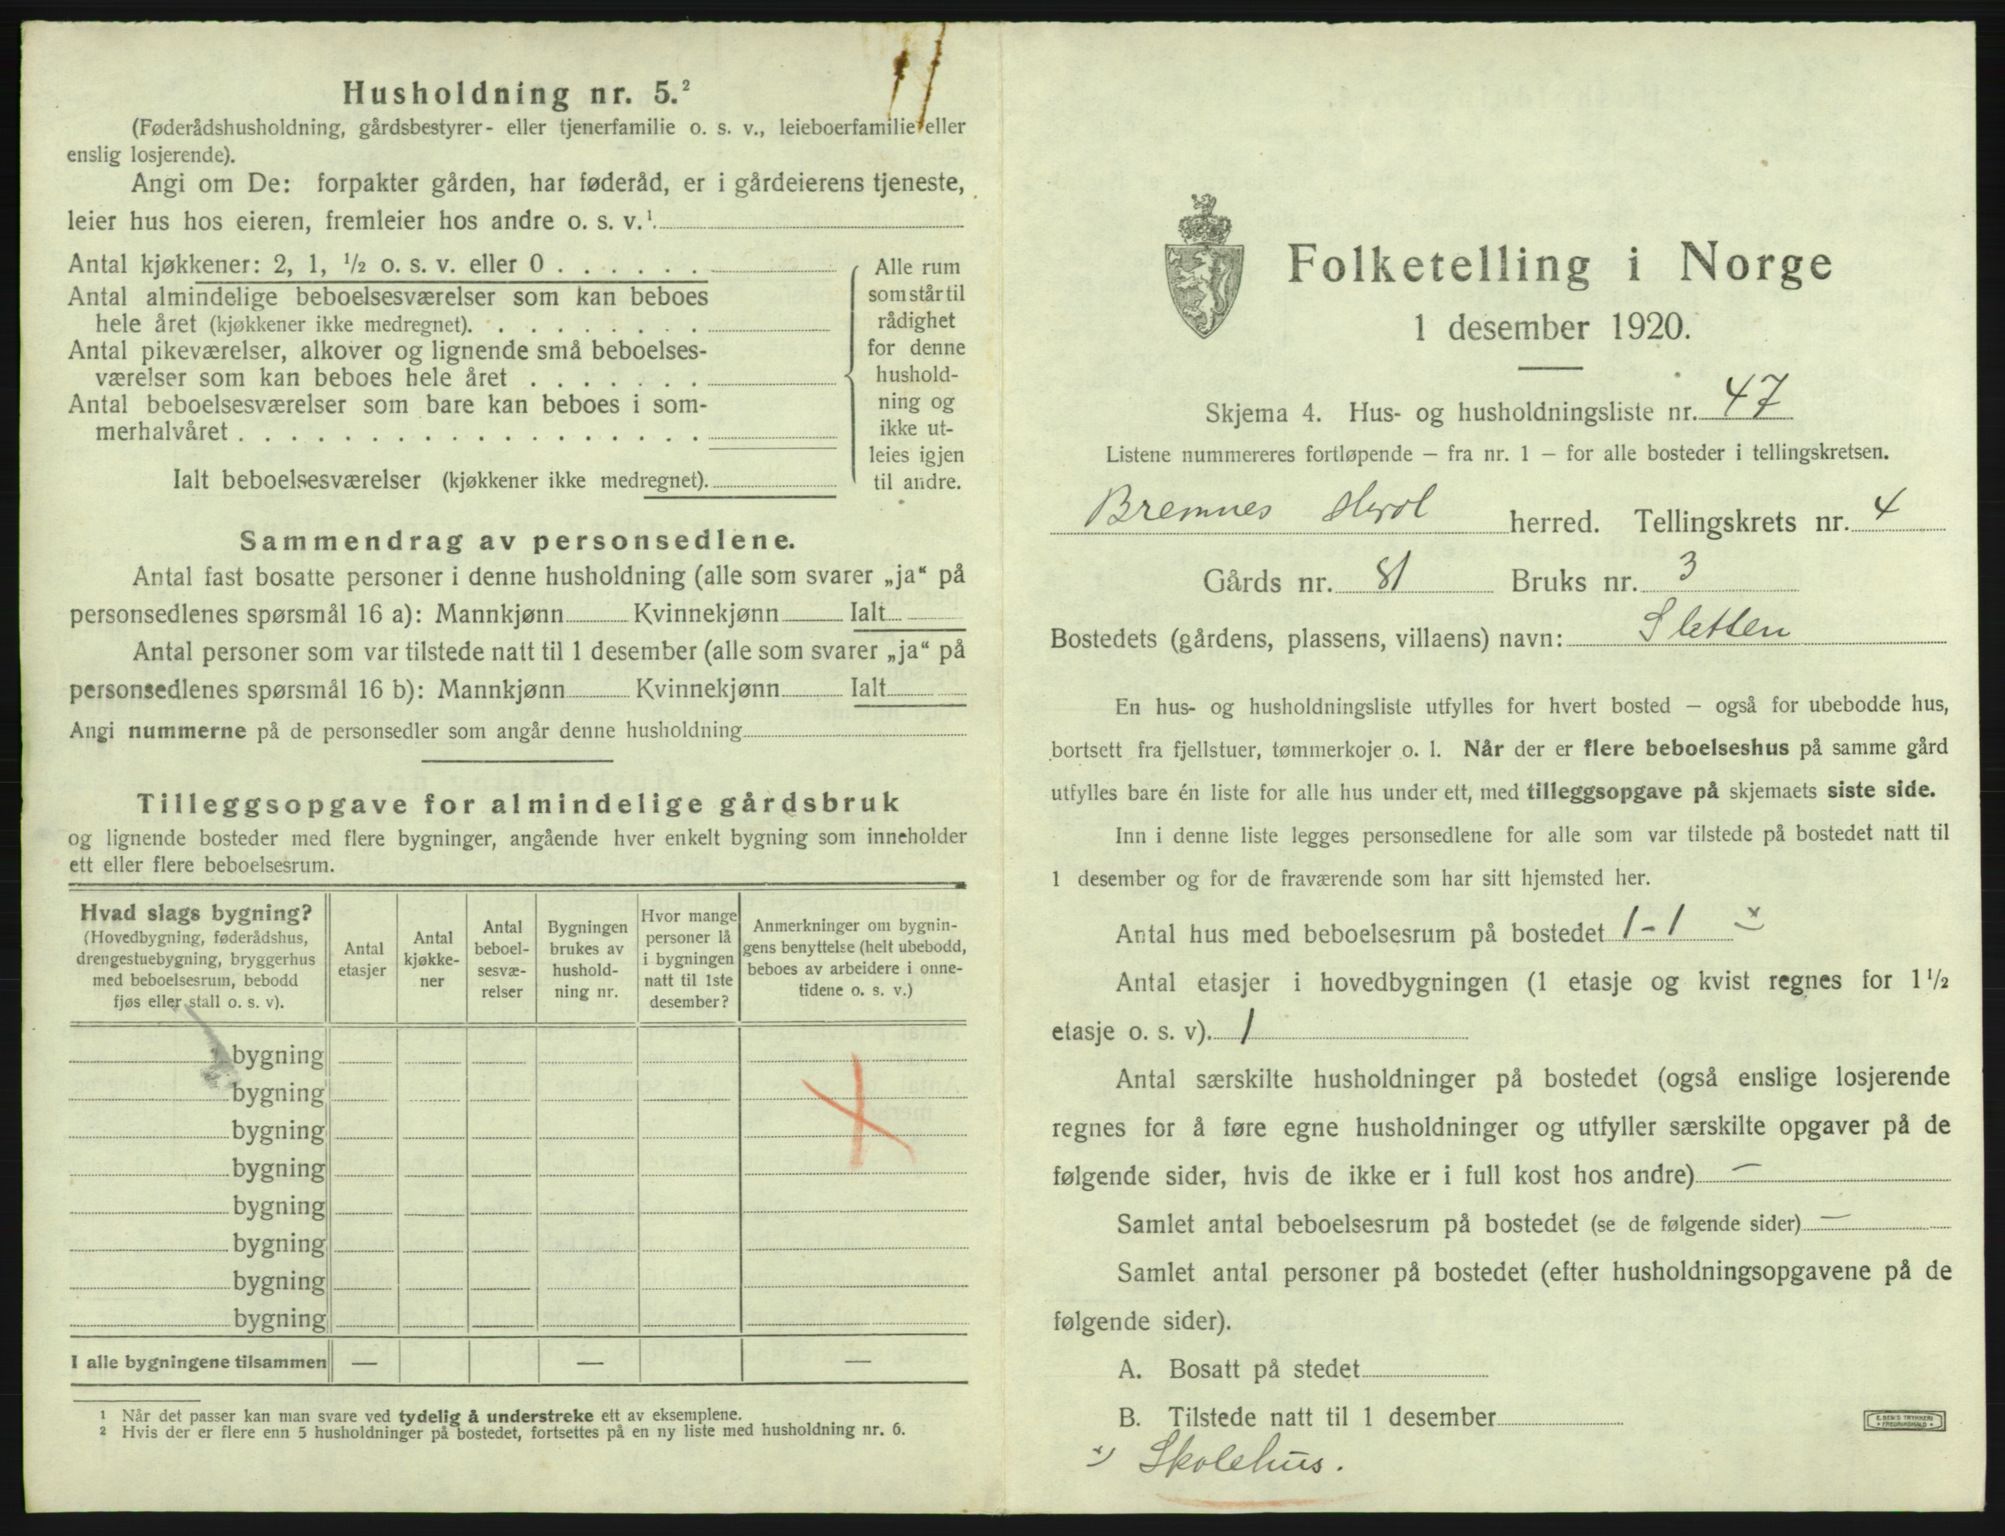 Husholdning nr. 5.²
(Føderådshusholdning, gårdsbestyrer- eller tjenerfamilie o. s. v., leieboerfamilie eller
enslig losjerende).
Angi om De: forpakter gården, har føderåd, er i gårdeierens tjeneste,
leier hus hos eieren, fremleier hos andre o. s. v.¹
Antal kjøkkener: 2, 1, ½ o. s. v. eller 0 . . . . . .
Antal almindelige beboelsesværelser som kan beboes
hele året (kjøkkener ikke medregnet). . . . . . . . . .
Antal pikeværelser, alkover og lignende små beboelses-
værelser som kan beboes hele året . . . . . . .
Antal beboelsesværelser som bare kan beboes i som-
merhalvåret . . . . . . . . . . . . . . . . . .
Ialt beboelsesværelser (kjøkkener ikke medregnet).
Alle rum
som står til
rådighet
for denne
hushold-
ning og
ikke ut-
leies igjen
til andre.
Sammendrag av personsedlene.
Antal fast bosatte personer i denne husholdning (alle som svarer „ja“ på
personsedlenes spørsmål 16 a): Mannkjønn Kvinnekjønn Ialt
Antal personer som var tilstede natt til 1 desember (alle som svarer „ja“ på
personsedlenes spørsmål 16 b): Mannkjønn Kvinnekjønn Ialt
Angi nummerne på de personsedler som angår denne husholdning
Tilleggsopgave for almindelige gårdsbruk
og lignende bosteder med flere bygninger, angående hver enkelt bygning som inneholder
ett eller flere beboelsesrum.
Hvad slags bygning?
(Hovedbygning, føderådshus,
drengestuebygning, bryggerhus
med beboelsesrum, bebodd
fjøs eller stall o. s. v).
Antal
etasjer
Antal
kjøkke-
ner
Antal
beboel-
sesvæ-
relser
Bygningen
brukes av
hushold-
ning nr.
Hvor mange
personer lå
i bygningen
natt til 1ste
desember?
Anmerkninger om bygnin-
gens benyttelse (helt ubebodd,
beboes av arbeidere i onne-
tidene o. s. v.)
bygning
bygning
bygning
bygning
bygning
bygning
bygning
bygning
I alle bygningene tilsammen — — —
¹ Når det passer kan man svare ved tydelig å understreke ett av eksemplene.
² Hvis der er flere enn 5 husholdninger på bostedet, fortsettes på en ny liste med husholdning nr. 6.
Folketelling i Norge
1 desember 1920.
Skjema 4. Hus- og husholdningsliste nr. 47
Listene nummereres fortløpende — fra nr. 1 — for alle bosteder i tellingskretsen.
Bremnes herred. Tellingskrets nr. 4
Gårds nr. 81 Bruks nr. 3
Bostedets (gårdens, plassens, villaens) navn: Sletten
En hus- og husholdningsliste utfylles for hvert bosted — også for ubebodde hus,
bortsett fra fjellstuer, tømmerkojer o. l. Når der er flere beboelseshus på samme gård
utfylles bare én liste for alle hus under ett, med tilleggsopgave på skjemaets siste side.
Inn i denne liste legges personsedlene for alle som var tilstede på bostedet natt til
1 desember og for de fraværende som har sitt hjemsted her.
Antal hus med beboelsesrum på bostedet 1-1 x)
Antal etasjer i hovedbygningen (1 etasje og kvist regnes for 1½
etasje o. s. v). 1
Antal særskilte husholdninger på bostedet (også enslige losjerende
regnes for å føre egne husholdninger og utfyller særskilte opgaver på de
følgende sider, hvis de ikke er i full kost hos andre) —
Samlet antal beboelsesrum på bostedet (se de følgende sider) —
Samlet antal personer på bostedet (efter husholdningsopgavene på de
følgende sider).
A. Bosatt på stedet
B. Tilstede natt til 1 desember
x) Skolehus.